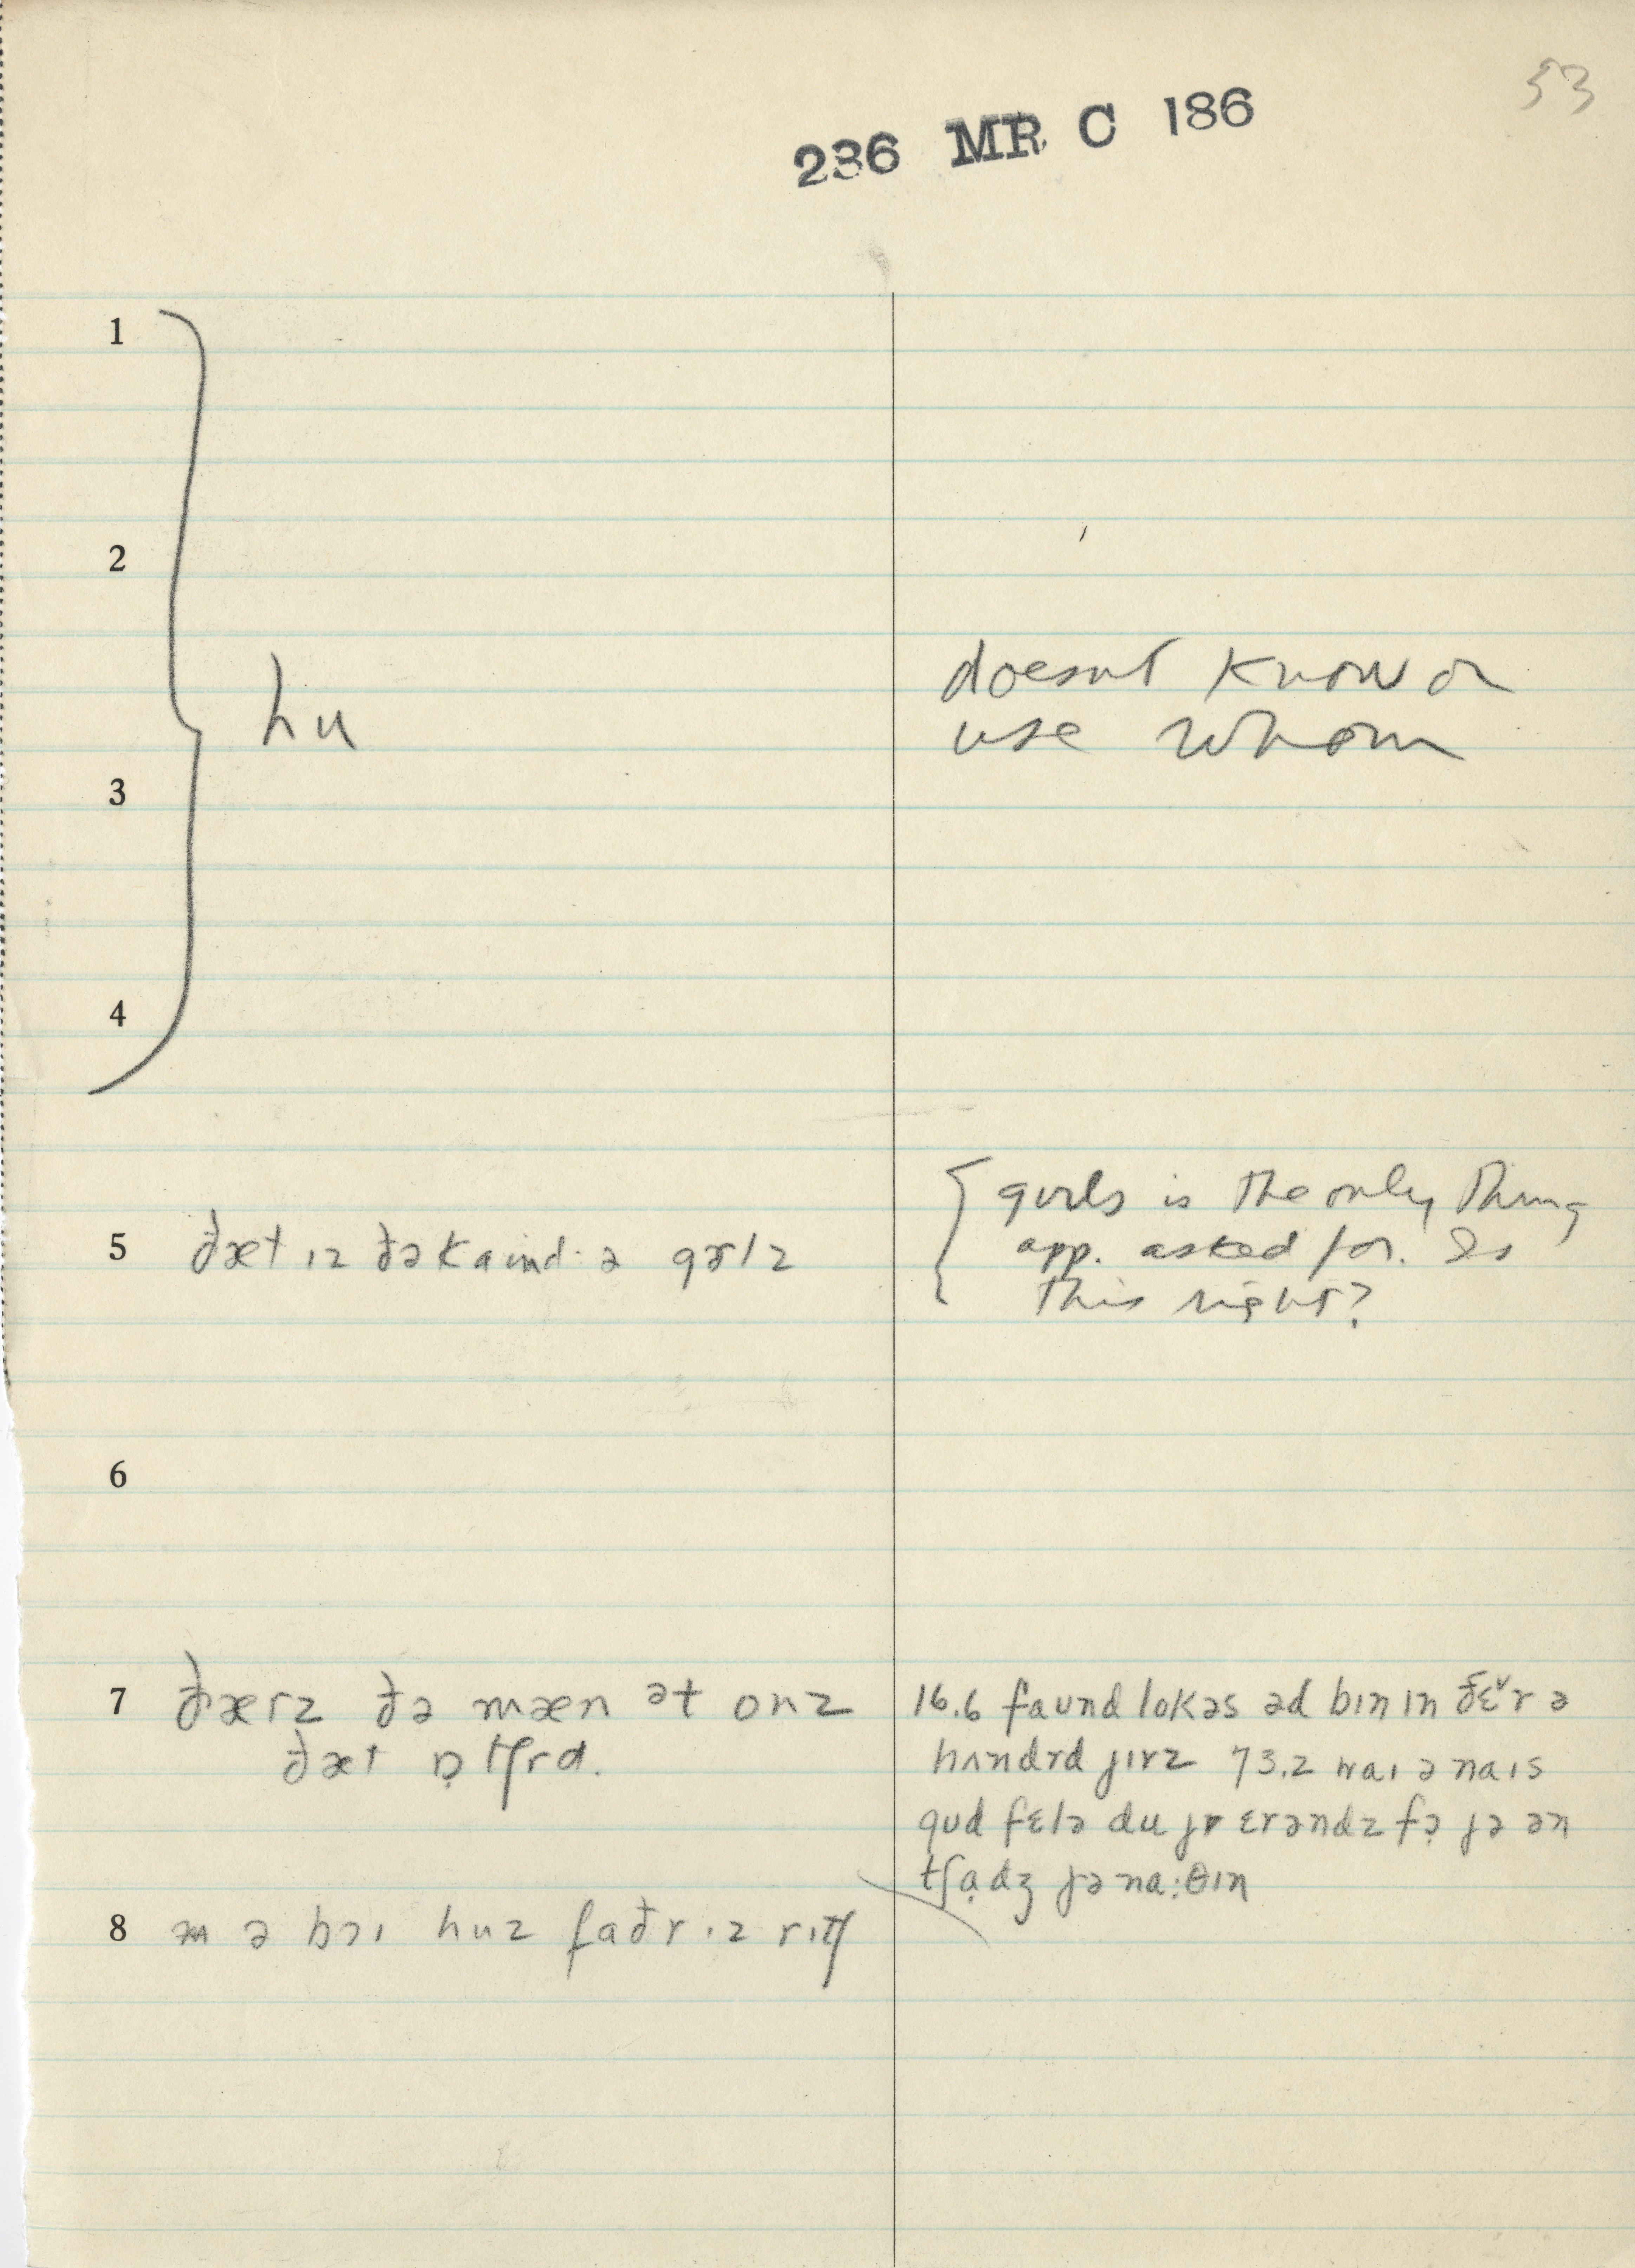 53
236 MR C 186
1
2
doesnt know or
hu
use whom
3
4
girls is the only thing
5 ðæt ɪz ðə kaɪnd· ə gɚlz
app. asked for. Is
this right?
6
7 ðærz ðə mæn ət onz
ðæt ɒ̣tʃrd.
16.6 faʊnd lokəs əd bɪn ɪn ðɛ̌r ə
hʌndrd jɪrz 73.2 waɪ ə naɪs
gʊd fɛlə du jr ɛrəndz fə̣ jə ən
tʃạdʒ jə na:θɪn
8 ə bɔɪ huz faðr ɪz rɪtʃ